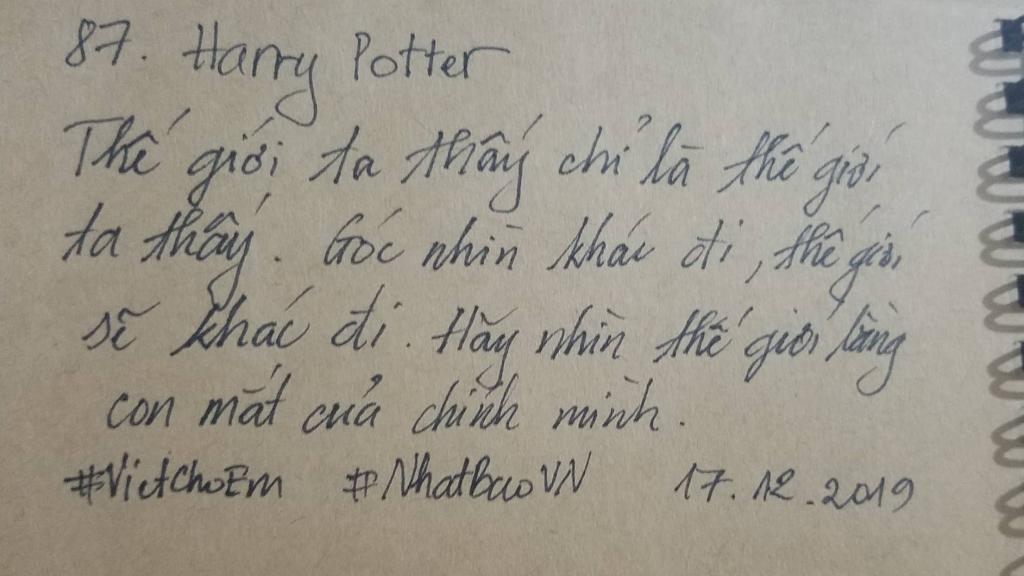 87. Harry Potter
Thế giới ta thấy chỉ là thế giới
ta thấy. Góc nhìn khác đi, thế giới
sẽ khác đi. Hãy nhìn thế giới bằng
con mắt của chính mình.
#VietChoEm #NhatBaoVN 17.12.2019